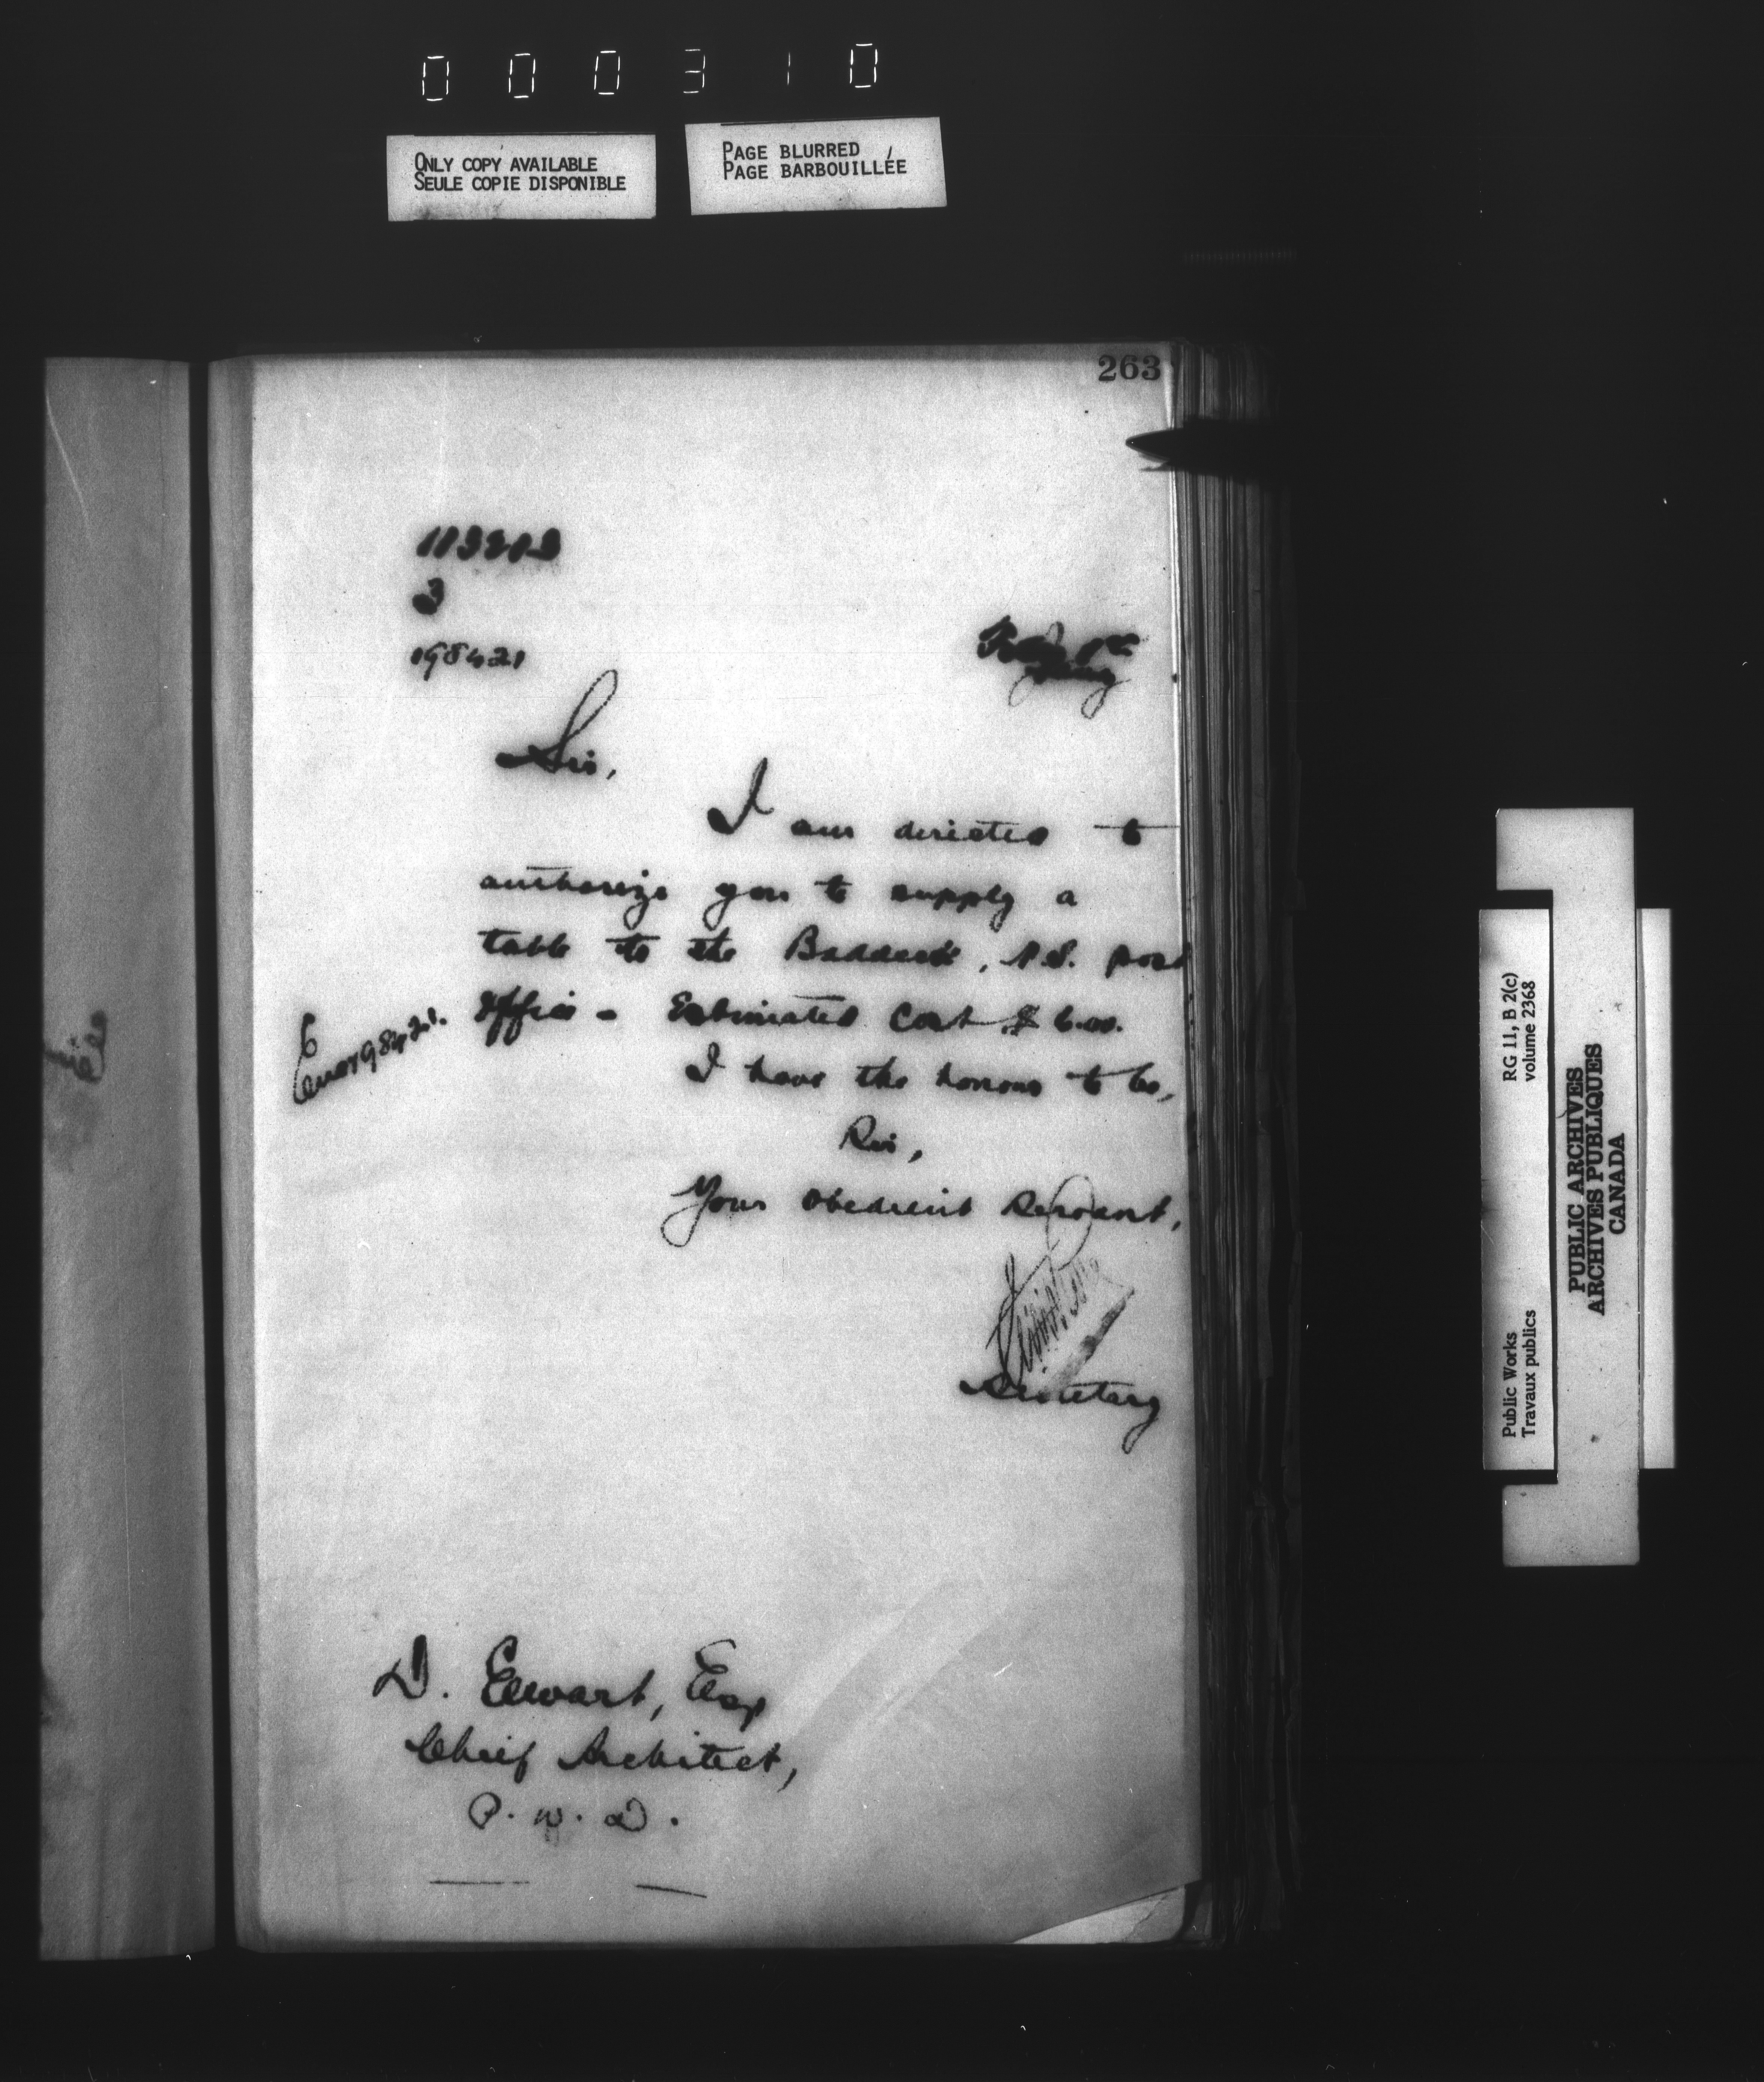 000310
ONLY COPY AVAILABLE
SEULE COPIE DISPONIBLE
PAGE BLURRED
PAGE BARBOUILLÉE
263
3
198421
Sir,
I am directed to
authorize you to supply a
table to the Baddeck, N.S. post
office - Estimated Cost $6.00.
I have the honour to be,
Sir,
Your obedient servant,
Secretary
D. Ewart, Esq
Chief Architect,
P. W. D.
Public Works
Travaux publics
RG 11, B 2(c)
volume 2368
PUBLIC ARCHIVES
ARCHIVES PUBLIQUES
CANADA